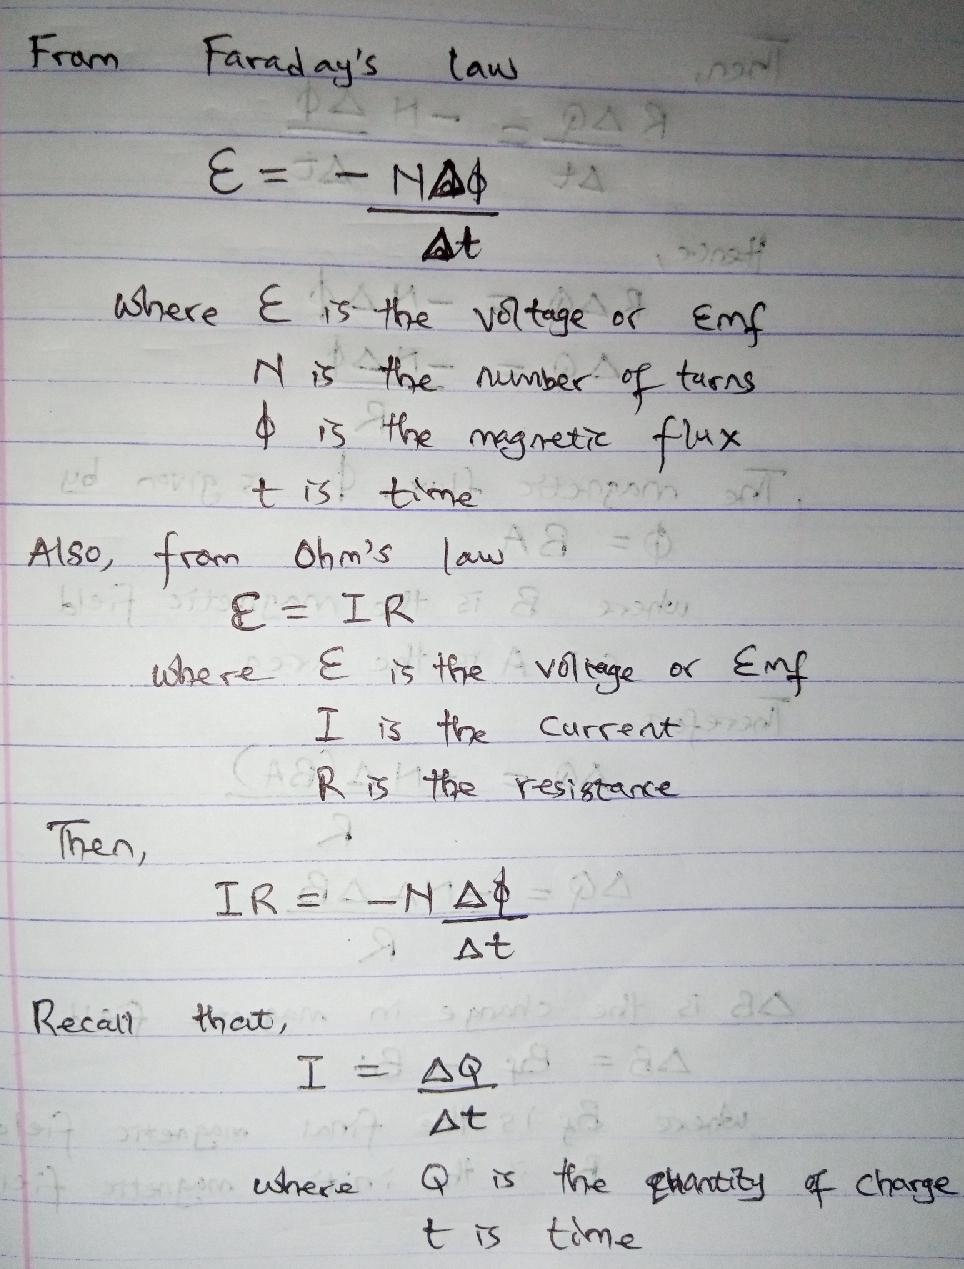 From Faraday's law
ε = - NΔϕ
Δt
where ε is the voltage or Emf
N is the number of turns
ϕ is the magnetic flux
t is time
Also, from Ohm's law
ε = IR
where ε is the voltage or Emf
I is the current
R is the resistance
Then,
IR = -NΔϕ
Δt
Recall that,
I = ΔQ
Δt
where Q is the quantity of charge
t is time